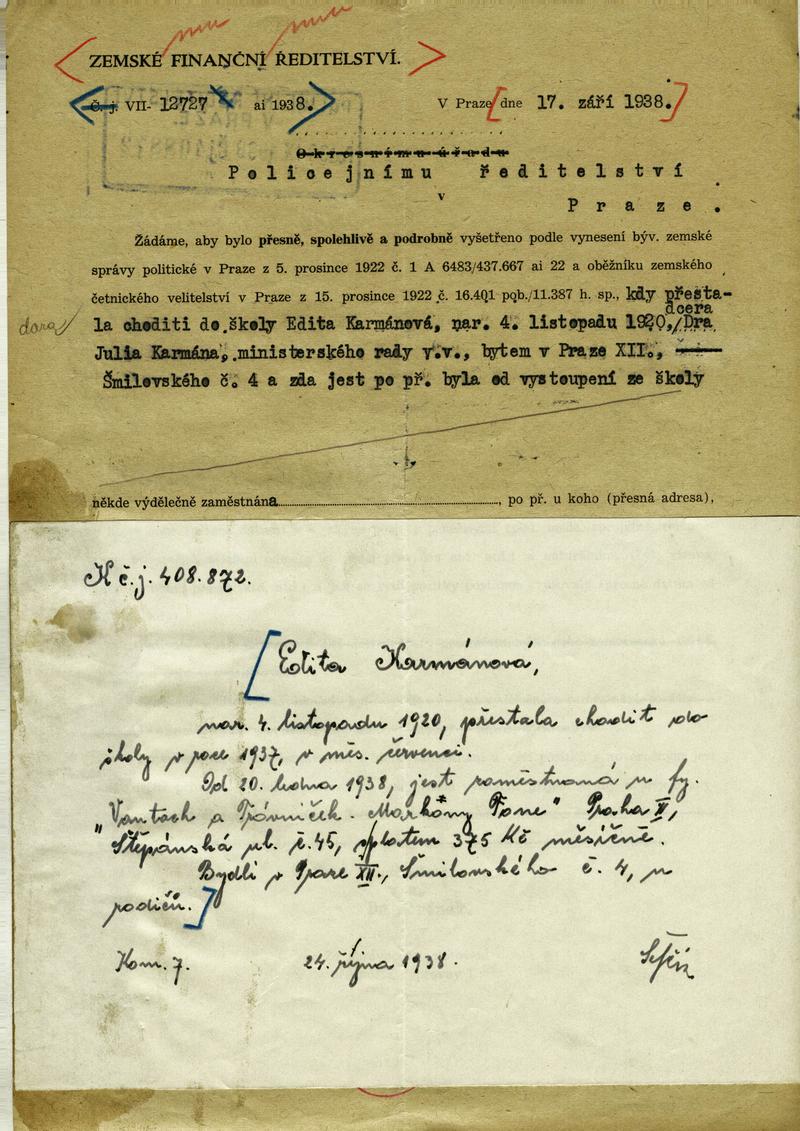 ZEMSKÉ FINANČNÍ ŘEDITELSTVÍ.
Č. j. VII- 12727 ai 1938.
V Praze dne 17. září 1938.
Okresnímu úřadu
Policejnímu ředitelství
v
Praze.
Žádáme, aby bylo přesně, spolehlivě a podrobně vyšetřeno podle vynesení býv. zemské
správy politické v Praze z 5. prosince 1922 č. 1 A 6483/437.667 ai 22 a oběžníku zemského
četnického velitelství v Praze z 15. prosince 1922 č. 16.401 pqb./11.387 h. sp., kdy přesta-
dcera
la choditi do školy Edita Karmánová, nar. 4. listopadu 1920,/Dra
Julia Karmána, ministerského rady v.v., bytem v Praze XII.,
Šmilovského č. 4 a zda jest po př. byla od vystoupení ze školy
někde výdělečně zaměstnána, po př. u koho (přesná adresa),
K č.j. 408.872.
Edita Karmánová,
nar. 4. listopadu 1920, přestala chodit do
školy v roce 1937, v měs. červenci.
Od 20. ledna 1938, jest zaměstnaná u fy.
"Vantoch a Trávníček - Markony Fone" Praha II,
Štěpánská ul. č. 45, s platem 375 Kč měsíčně.
Bydlí v Praze XII., Šmilovského č. 4, u
rodičů.
Kom. 7. 24. října 1938.